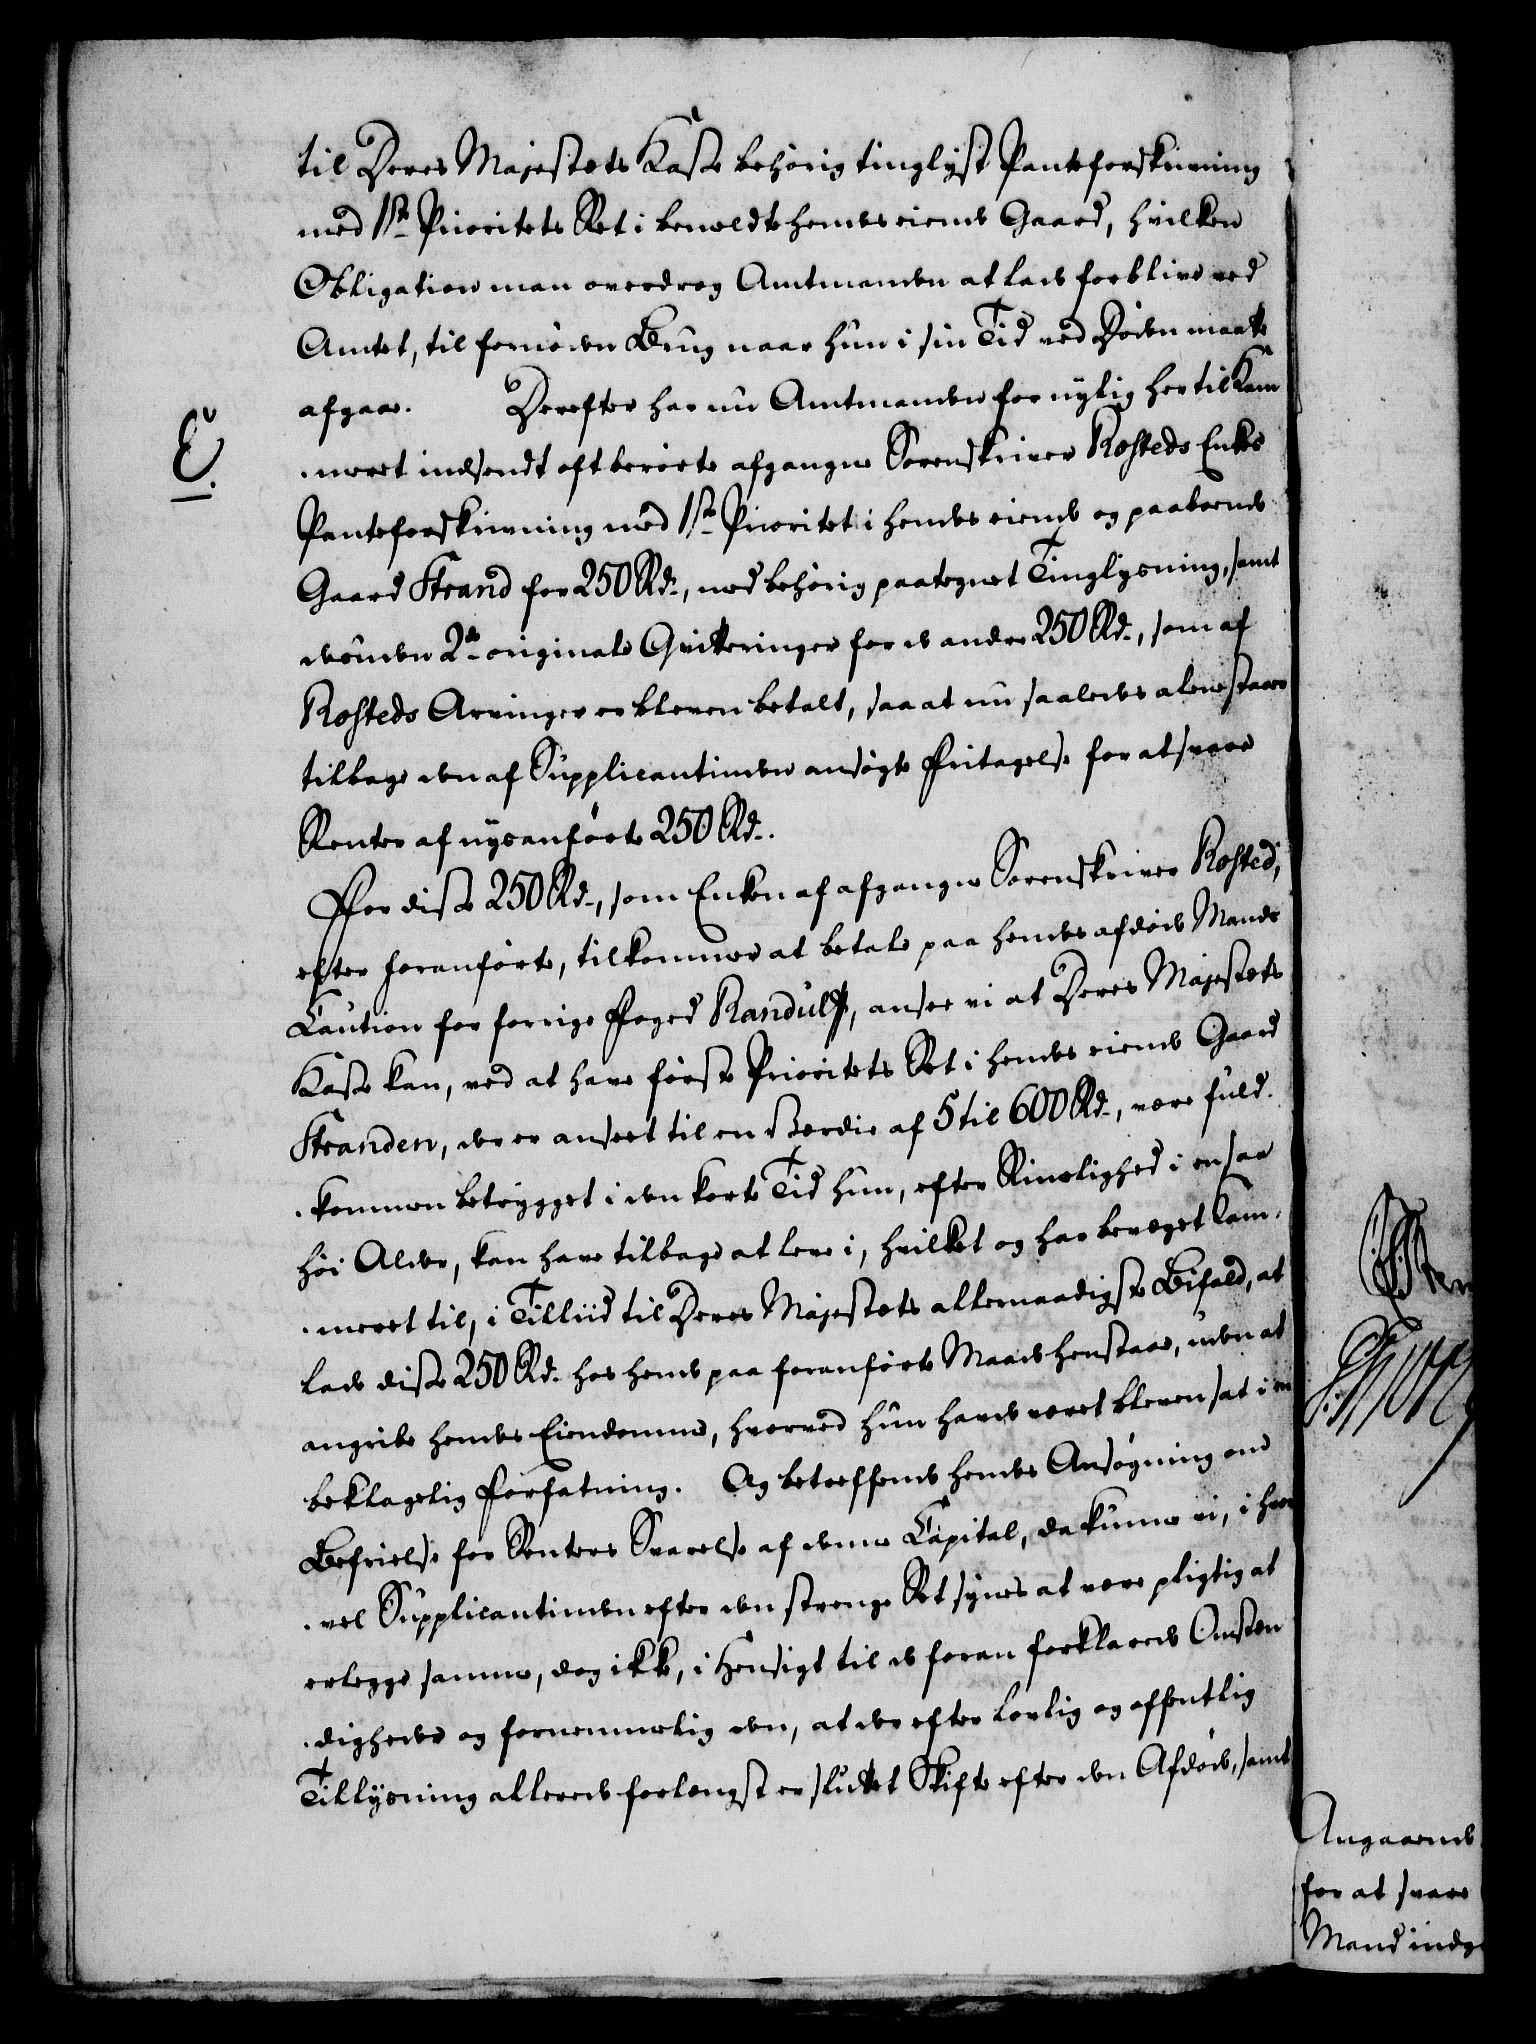 til Deres Majestæts Kasse behørig tinglyst Panteforskrivning
med 1ste Prioritets Ret i bemeldte hendes eiende Gaard, hvilken
Obligation man overdrog Amtmanden at lade forblive ved
Amtet, til fornøden Brug naar hun i sin Tid ved Døden maatte
afgaae. Derefter har nu Amtmanden for nylig her til Kam
E.
meret indsendt oftberørte afgangne Sorenskriver Rosteds Enkes
Panteforskrivning med 1ste Prioritet i hendes eiende og paaboende
Gaard Strand for 250 Rd., med behørig paategnet Tinglysning, samt
desuden 2de originale Qvitteringer for de andre 250 Rd., som af
Rosteds Arvinger er bleven betalt, saa at nu saaledes alene staaer
tilbage den af Supplicantinden ansøgte Fritagelse for at svare
Renter af nysanførte 250 Rd.
For disse 250 Rd., som Enken af afgangne Sorenskriver Rosted,
efter foranførte, tilkommer at betale paa hendes afdøde Mands
Caution for forrige Foged Randulff, ansee vi at Deres Majestæts
Kasse kan, ved at have første Prioritets Ret i hendes eiende Gaard
Stranden, der er anseet til en Værdie af 5 til 600 Rd., være fuld-
kommen betrygget i den korte Tid hun, efter Rimelighed i en saa
høi Alder, kan have tilbage at leve i, hvilket og har bevæget Cam-
meret til, i Tilliid til Deres Majestæts allernaadigste Bifald, at
lade disse 250 Rd. hos hende paa foranførte Maade henstaae, uden at
angribe hendes Eiendomme, hvorved hun havde været bleven sat i en
beklagelig Forfatning. Og betreffende hendes Ansøgning om
Befrielse for Renters Svarelse af denne Capital, da kunne vi, i hvor
vel Supplicantinden efter den strenge Ret synes at være pligtig at
erlegge samme, dog ikke, i Hensigt til de foran forklarede Omstæn
digheder og fornemmelig den, at der efter lovlig og offentlig
Tillysning allerede forlængst er sluttet Skifte efter den Afdøde, samt
Angaaende
for at svare
Mand indg